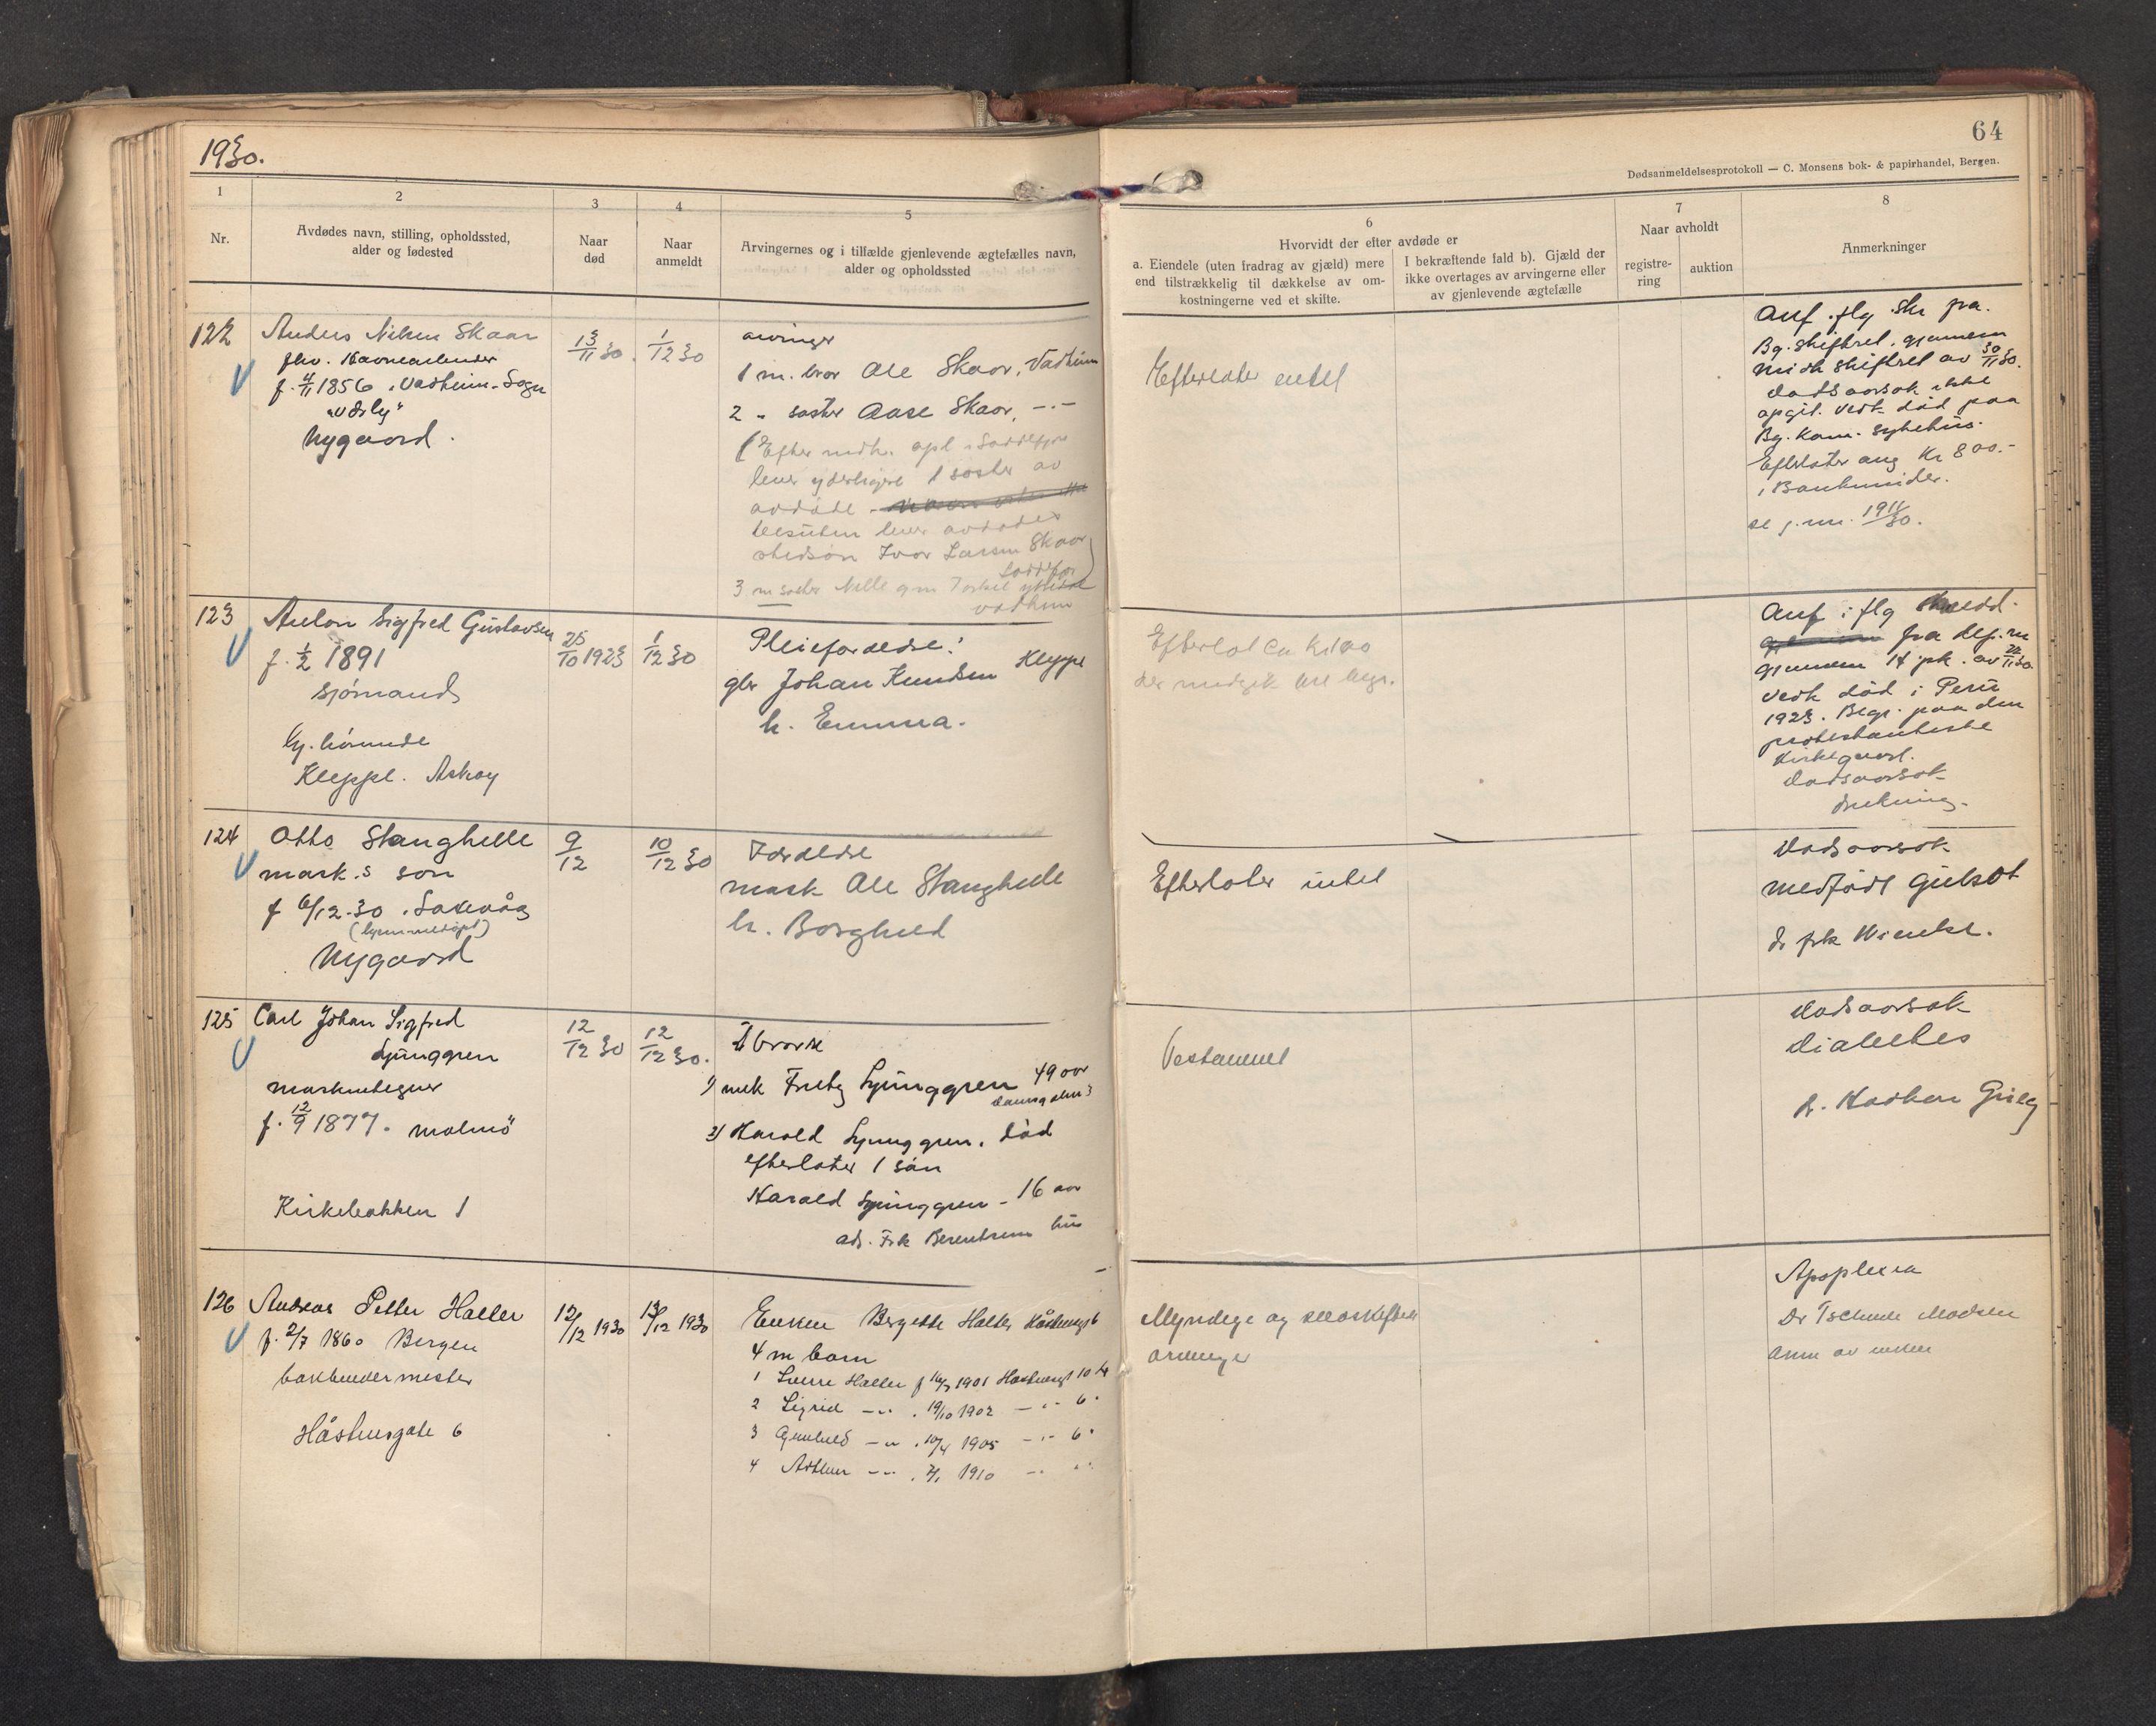 1930.
64
Dødsanmeldelsesprotokoll — C. Monsens bok- & papirhandel, Bergen.
1
Nr.
2
Avdødes navn, stilling, opholdssted,
alder og fødested
3
Naar
død
4
Naar
anmeldt
5
Arvingernes og i tilfælde gjenlevende ægtefælles navn,
alder og opholdssted
6
Hvorvidt der efter avdøde er
a. Eiendele (uten fradrag av gjæld) mere
end tilstrækkelig til dækkelse av om-
kostningerne ved et skifte.
I bekræftende fald b). Gjæld der
ikke overtages av arvingerne eller
av gjenlevende ægtefælle
7
Naar avholdt
registre-
ring
auktion
8
Anmerkninger
122
Anders Nilsen Skaar
fhv. Havnearbeider
f. 4/11 1856 . Vadheim. Sogn
Nygaard.
13/11 30.
1/12 30
arvinger
1 m. bror Ole Skaar, Vadheim
2 " søster Aase Skaar, -"-
(Efter medh. opl i
lever yderligere 1 søster av
avdøde
desuten lever avdødes
Ivar Larsen Skaar
3 m søster
Vadheim
Efterlater intet
Anf. flg. skr fra.
Bg. skifteret. gjennem
midh skifteret av 30/11 30.
Dødsaarsak ikke
opgit. Vedk død paa
Bg. Kom. sykehus.
Efterlater ang Kr 800.-
i Bankmidler.
se j. nr.
123
Anton Sigfred Gustavsen
f. 1/2 1891
sjømand
Kleppe. Askøy
25/10 1923
1/12 30
Pleieforældre:
gbr Johan Knudsen Kleppe
h. Emma.
Efterlot ca kr 100
der medgik
Anf i flg
fra
gjennem
vedk død i Peru
1923. Begr. paa den
protestantiske
Kirkegaard.
Dødsaarsak
drukning.
124
Otto Stanghelle
mask.s søn
f 6/12.30 . Laxevåg
(hjemmedøpt)
Nygaard
9/12
10/12 30
Forældre
mask Ole Stanghelle
h. Borghild
Efterlater intet
Dødsaarsak
medfødt gulsot
dr frk Wienke.
125
Carl Johan Sigfred
Ljunggren
maskintegner
f. 12/9 1877. Malmö
Kirkebakken 1
12/12 30
12/12 30.
2 brødre
1) mek Fritz Ljunggren 49 aar
2) Harald Ljunggren. død
efterlater 1 søn
Harald Ljunggren - 16 aar
ads. Frk Berentsens hus
Testament
Dødsaarsak
diabetes
dr. Haakon Grieg
126
Andreas Petter Halter
f. 2/7 1860 Bergen
bokbindermester
Håsteinsgate 6
12/12 1930
13/12 1930
Enken Bergette Halter Håsteinsgt 6
4 m barn
1 Sverre Halter f 16/3 1901 Håsteinsgt 10
2 Sigrid -"- . 19/10 1902 -"- 6.
3 Gunhild -"- . 10/4 1905 -"- 6.
4 Arthur -"- . 2/1 1910 -"- "
Myndige og
arvinger
Apoplexia
Dr Tschudi Madsen
Anm av enken